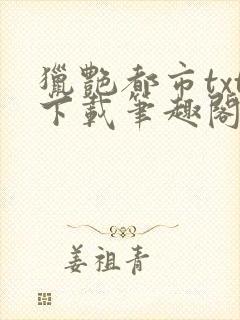 獵艷都市txt
下載筆趣閣
姜祖青